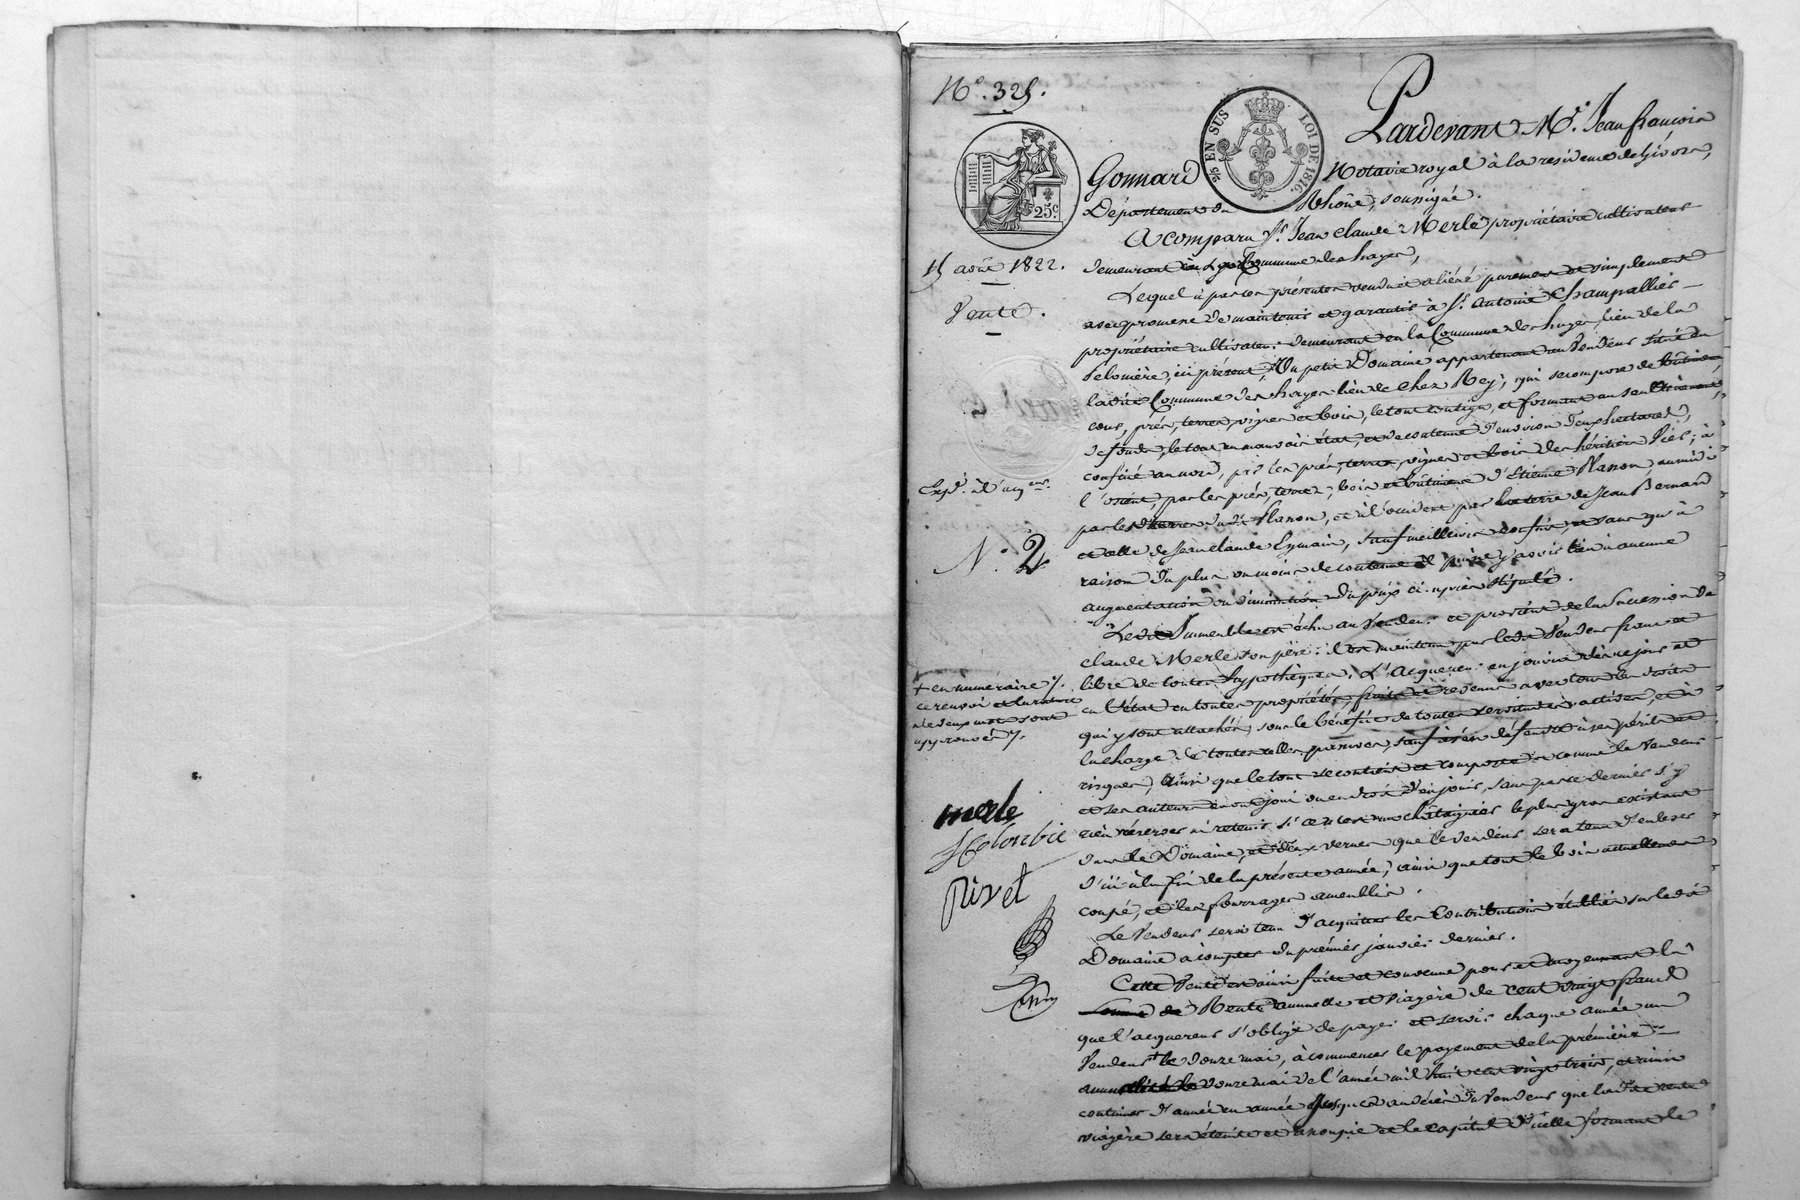 N.º 325.
EN SUS
LOI DE 1816.
25 c.
Pardevant M.e Jean françois
Gonnard Notaire royal à la residence de Givors,
Département du Rhône, soussigné.
A comparu S.r Jean claude Merle propriétaire cultivateur
demeurant Commune des hayes,
Lequel a par ces présentes vendu et aliéné purement et simplement
avec promesse de maintenir et garantir à S.r Antoine Champallier
propriétaire cultivateur demeurant en la Commune des hayes, lieu de la
ici présent, Un petit Domaine appartenant au Vendeur situé en
ladite Commune des hayes lieu de Chez Rey; qui se compose de bâtimens,
cour, prés, terres, vignes et bois, le tout contigu, et formant un seul
de fonds, le tout en mauvais état, et de contenue d'environ deux hectares,
confiné au nord, par les prés, terres, vignes et bois des héritiers ; à
l'orient, par les prés, terres, bois et bâtimens d'Etienne Planon, au midi
par les terres dud.t Planon, et à l'occident par la terre de Jean Bernard
et celle de Jean claude Eymain, sauf meilleurs confins, et sans qu'à
raison du plus ou moins de contenue il puisse y avoir lieu à aucune
augmentation ou diminution du prix ci-après stipulé.
Ledit Immeuble est échu au Vendeur et provient de la Succession de
claude Merle son père: il est maintenu par ledit Vendeur franc et
libre de toutes hypothèques. L'Acquereur en jouira dès ce jour et
en l'état en toute propriété, fruits et revenus avec tous les droits
qui y sont attachés, sous le bénéfice de toutes servitudes actives, et à
la charge de toutes celles passives, sauf à s'en défendre à ses périls et
risques, Ainsi que le tout se contient et comporte et comme le Vendeur
et ses auteurs en ont joui ou en droit d'en jouir, sans par ce dernier s'y
rien réserver ni retenir si ce n'est un châtaignier le plus gros existant
dans le Domaine, et deux vernes que le vendeur sera tenu d'enlever
d'ici à la fin de la présente année; ainsi que tout le bois actuellement
coupé, et les fourrages ameublis.
Le Vendeur sera tenu d'acquitter les Contributions établies sur ledit
Domaine à compter du premier janvier dernier.
Cette Vente est ainsi faite et convenue pour et moyennant la
Rente annuelle et viagère de cent vingt francs
que l'acquereur s'oblige de payer et servir chaque année au
Vendeur le douze mai, à commencer le payement de la première
douze mai de l'année mil huit cent vingt trois, et ainsi
continuer d'année en année jusques au décès du Vendeur que ladite rente
viagère sera éteinte et amoupie et le capital d'icelle formant le
15 août 1822.
Vente.
N.º 2
+ en numéraire
ce renvoi et la rature
de deux mots sont
approuvés
merle
Colombie
Rivet